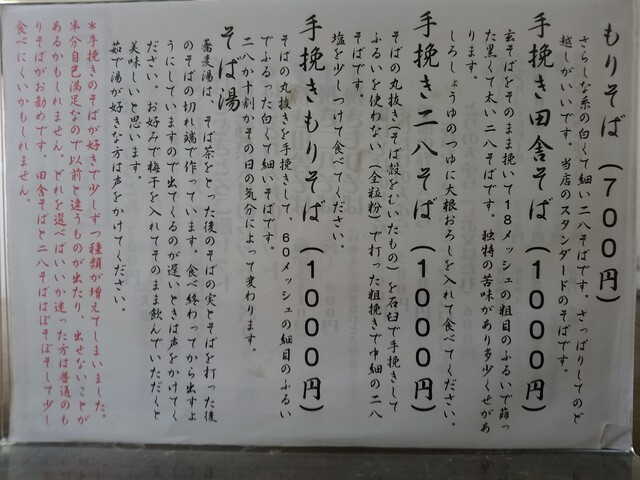 もりそば（７００円）
さらしな系の白くて細い二八そばです。さっぱりしてのど
越しがいいです。当店のスタンダードのそばです。
手挽き田舎そば（１０００円）
玄そばをそのまま挽いて18メッシュの粗目のふるいで篩っ
た黒くて太い二八そばです。独特の苦味があり多少くせがあ
ります。
しろしょうゆのつゆに大根おろしを入れて食べてください。
手挽き二八そば（１０００円）
そばの丸抜き(そば殻をむいたもの)を石臼で手挽きして
ふるいを使わない(全粒粉)で打った粗挽きで中細の二八
そばです。
塩を少しつけて食べてください。
手挽きもりそば（１０００円）
そばの丸抜きを手挽きして、60メッシュの細目のふるい
でふるった白くて細いそばです。
二八か十割かその日の気分によって変わります。
そば湯
蕎麦湯は、そば茶をとった後のそばの実とそばを打った後
のそばの切れ端で作っています。食べ終わってから出すよ
うにしていますので出てくるのが遅いときは声をかけてく
ださい。お好みで梅干を入れてそのまま飲んでいただくと
美味しいと思います。
茹で湯が好きな方は声をかけてください。
＊手挽きのそばが好きで少しずつ種類が増えてしまいました。
半分自己満足なので以前と違うものが出たり、出せないことが
あるかもしれません。どれを選べばいいか迷った方は普通のも
りそばがお勧めです。田舎そばと二八そばはぼそぼそして少し
食べにくいかもしれません。